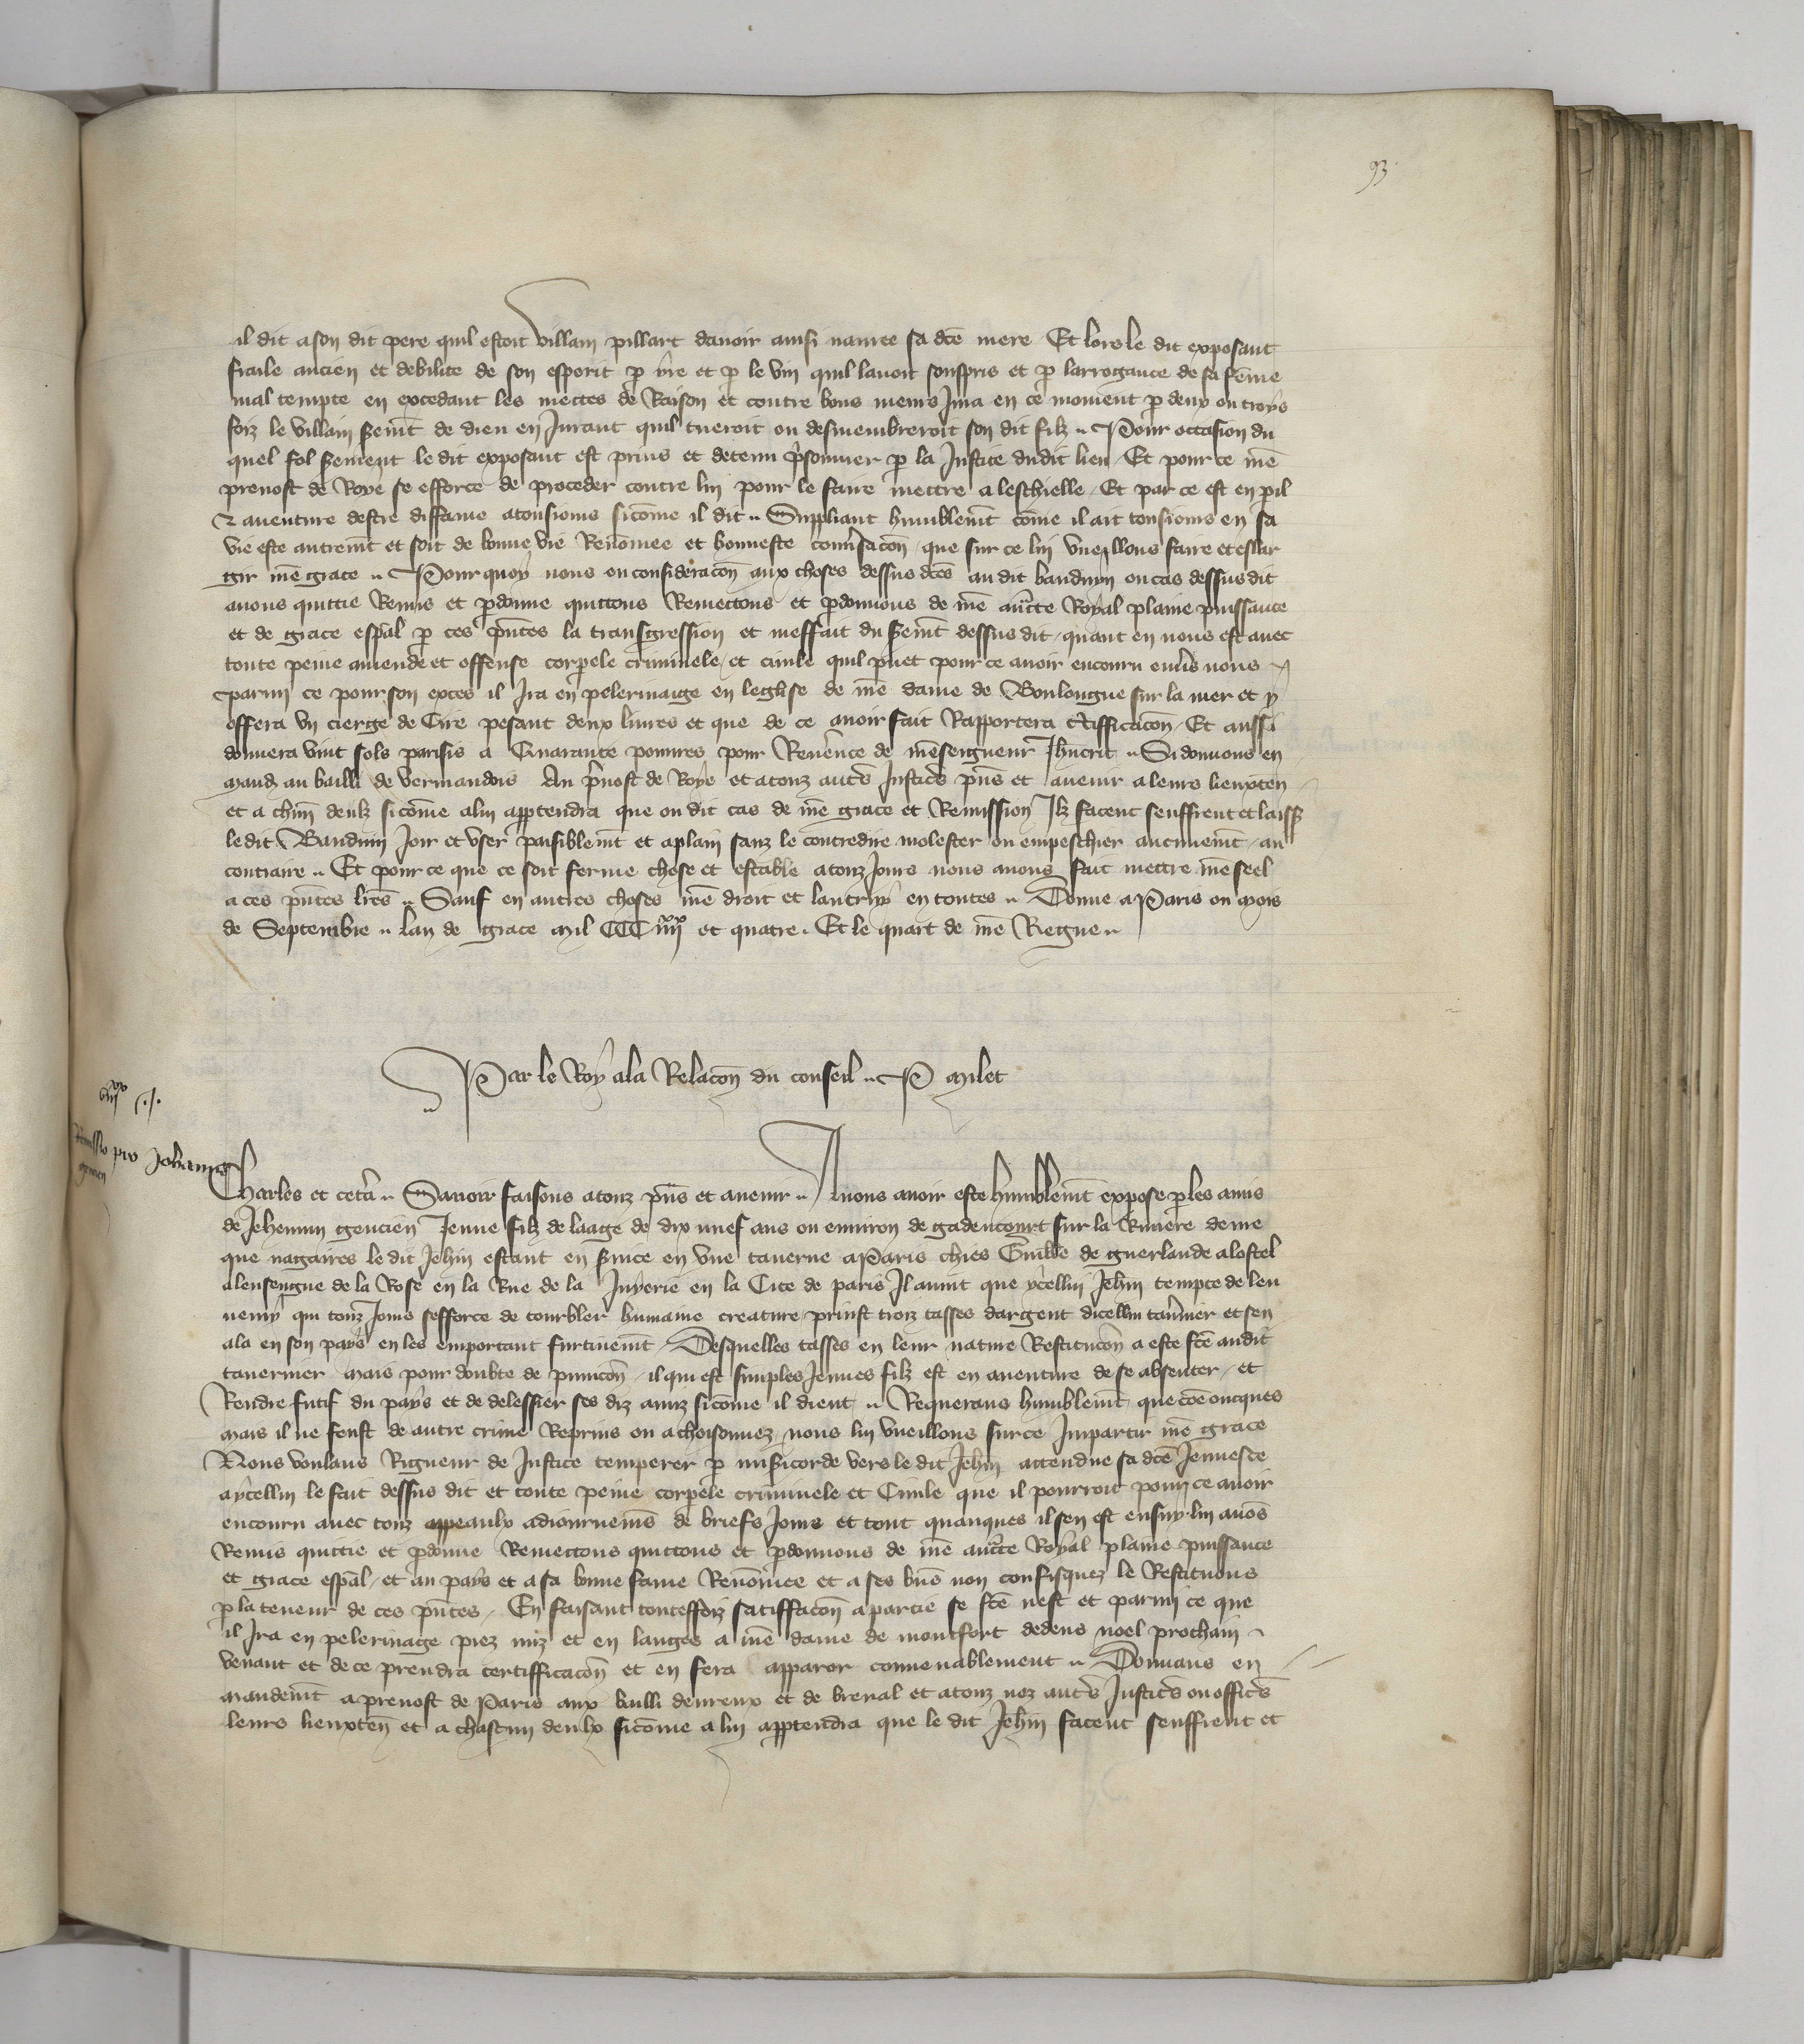 93
il dit a son dit pere quil estoit villain pillart dauoir ainsi nauree sa dcē mere Et lors le dit exposant
fraile ancien et debilite de son esperit p yre et p le vin quil lauoit souspris et p larrogance de sa fēme
mal tempte en excedant les mectes de Raison et contre bons meurs Jura en ce moment p deux ou troys
foiz le villain sermt de dieu en Jurant quil tueroit ou desmembreroit son dit filz Pour occasion du
quel fol serment le dit exposant est prins et detenu pisonnier p la Justice dudit lieu Et pour ce nrē
preuost de Roye se efforce de proceder contre lui pour le faire mettre a leschielle Et par ce est en pil
& auenture destre diffame a tousiours sicōme il dit Suppliant humblemt cōme il ait tousiours en sa
vie este autremt et soit de bonne vie Renōmee et honneste conusacōn que sur ce lui vueillons faire et eslar
gir nrē grace Pour quoy nous en consideracōn aux choses dessus dcēs au dit bauduyn ou cas dessus dit
auons quittie Remis et pdonne quittons Remettons et pdonnons de nrē auctē Royal plaine puissance
et de grace espāl p ces pntēs la transgression et meffait du sermt dessus dit quant en nous est auec
toute peine amende et offense corpele criminele et ciuile quil puet pour ce auoir encouru enuers nous
parmi ce pour son exces il Ira en pelerinaige en leglise de nrē dame de Boulongne sur la mer et y
offera vn cierge de Cire pesant deux liures et que de ce auoir fait Rapportera Ctifficacōn Et aussi
donnera vint sols parisis a Quarante poures pour Reuerence de nrē seigneur Jhucrit Si donnons en
mand au bailli de vermandois Au preuost de Roye et a touz autres Justicrs pns et auenir a leurs lieuxten
et a chūn deulz sicōme a lui apptendra que ou dit cas de nrē grace et Remission Ilz facent seuffrent et laiss
le dit Bauduin Joir et vser paisiblemt et a plain sanz le contredire molester ou empeschier aucunemt au
contraire Et pour ce que ce soit ferme chose et estable a touz Jours nous auons fait mettre nrē seel
a ces pntēs lrēs Sauf en autres choses nrē droit et lautruy en toutes Donne a Paris ou mois
de Septembre lan de grace mil CCC iiijxx et quatre Et le quart de nrē Regne
Par le Roy a la Relacōn du conseil P Milet
Remissio pro Johanne
gencien
Charles et cetā Sauoir faisons a touz pns et auenir A nous auoir este humblemt expose p les amis
de Jehennin gencien Jeune filz de laage de dix neuf ans ou enuiron de gadencourt sur la Riuiere deure
que nagaires le dit Jehin estant en seruice en vne tauerne a Paris chies Guille de guerlande a lostel
a lenseigne de la Rose en la Rue de la Juyerie en la Cite de paris Il auint que ycellui Jehin tempte de len
nemy qui touz Jours sefforce de tourbler humaine creature prinst troiz tasses dargent dicellui tauernier et sen
ala en son pays en les emportant furtiuemt Desquelles tasses en leur nature Restitucōn a este fcē audit
tauernier Mais pour doubte de punicōn il qui est simples Jeunes filz est en auenture de se absenter et
Rendre futif du pays et de delessier ses diz amiz sicōme il dient Requerans humblemt que cōe oncques
mais il ne feust de autre crime Reprins ou achoisonnez nous lui vueillons sur ce Impartir nrē grace
Nous voulans Rigueur de Justice temperer p misericorde vers le dit Jehin attendue sa dcē Jeunesce
a ycellui le fait dessus dit et toute peine corpele criminele et Ciuile que il pourroit pour ce auoir
encouru auec touz appeaulx adiournemens de briefs Jours et tout quanques il sen est ensuy lui auōs
Remis quittie et pdonne Remettons quittons et pdonnons de nrē auctē Royal plaine puissance
et grace espāl et au pays et a sa bonne fame Renōmee et a ses biens non confisquez le Restituons
p la teneur de ces pntēs En faisant touteffoiz satiffacōn a partie se fcē nest et parmi ce que
il Ira en pelerinage piez nuz et en langes a nrē dame de montfort dedens noel prochain
venant et de ce prendra certifficacōn et en fera apparoir conuenablement Donnans en
mandemt a preuost de Paris aux bailli deureux et de breual et a touz noz autres Justicrs ou officrs
leurs lieuxten et a chascun deulx sicōme a lui apptendra que le dit Jehin facent seuffrent et